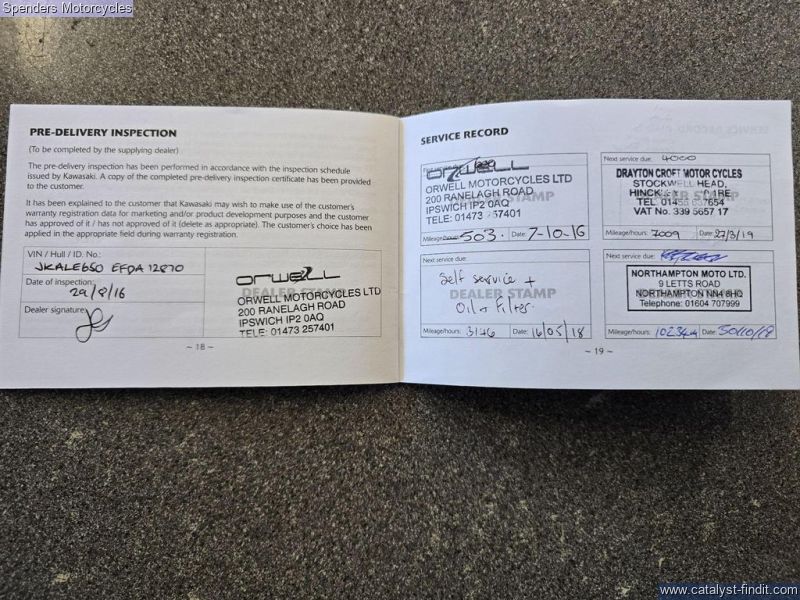 Spenders Motorcycles
PRE-DELIVERY INSPECTION
(To be completed by the supplying dealer)
The pre-delivery inspection has been performed in accordance with the inspection schedule
issued by Kawasaki. A copy of the completed pre-delivery inspection certificate has been provided
to the customer.
It has been explained to the customer that Kawasaki may wish to make use of the customer's
warranty registration data for marketing and/or product development purposes and the customer
has approved of it / has not approved of it (delete as appropriate). The customer's choice has been
applied in the appropriate field during warranty registration.
VIN / Hull / ID. No.:
JKALE650 EFDA 12870
Date of inspection:
29/8/16
Dealer signature:
orwell
DEALER STAMP
ORWELL MOTORCYCLES LTD
200 RANELAGH ROAD
IPSWICH IP2 0AQ
TELE: 01473 257401
~ 18 ~
SERVICE RECORD
orwell
ORWELL MOTORCYCLES LTD
200 RANELAGH ROAD
IPSWICH IP2 0AQ
TELE: 01473 257401
Mileage/hours: 503. Date: 7-10-16
Next service due: 4000
DRAYTON CROFT MOTOR CYCLES
STOCKWELL HEAD,
TEL. 01455
VAT No. 339 5657 17
Mileage/hours: 7009 Date: 27/3/19
Next service due:
Self service +
DEALER STAMP
Oil + Filter.
Mileage/hours: 3146 Date: 16/05/18
Next service due:
NORTHAMPTON MOTO LTD.
9 LETTS ROAD
NORTHAMPTON NN4 8HQ
Telephone: 01604 707999
Mileage/hours: Date:
~ 19 ~
www.catalyst-findit.com